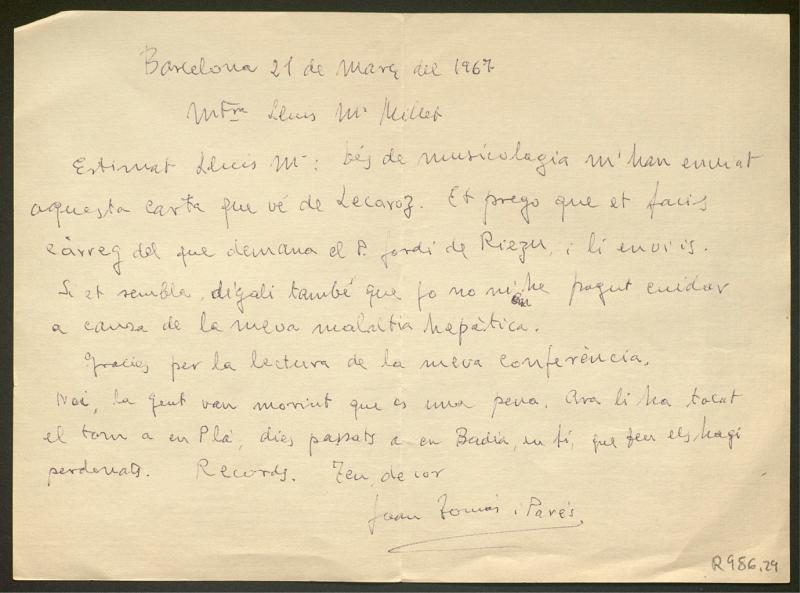 Barcelona 21 de març del 1967
Mtre Lluis Mª Millet
Estimat Lluis Mª: des de musicologia m'han enviat
aquesta carta que vé de Lecaroz. Et prego que et facis
càrreg del que demana el P. Jordi de Riezu, i li enviis.
Si et sembla, digali també que jo no m'he pogut cuidar
a causa de la meva malaltia hepàtica.
Gracies per la lectura de la meva conferència.
Noi, la gent van morint que es una pena. Ara li ha tocat
el torn a en Plà, dies passats a en Badia, en fi, que Deu els hagi
perdonats. Records. Teu, de cor
Joan Tomás i Parés
R 986.29